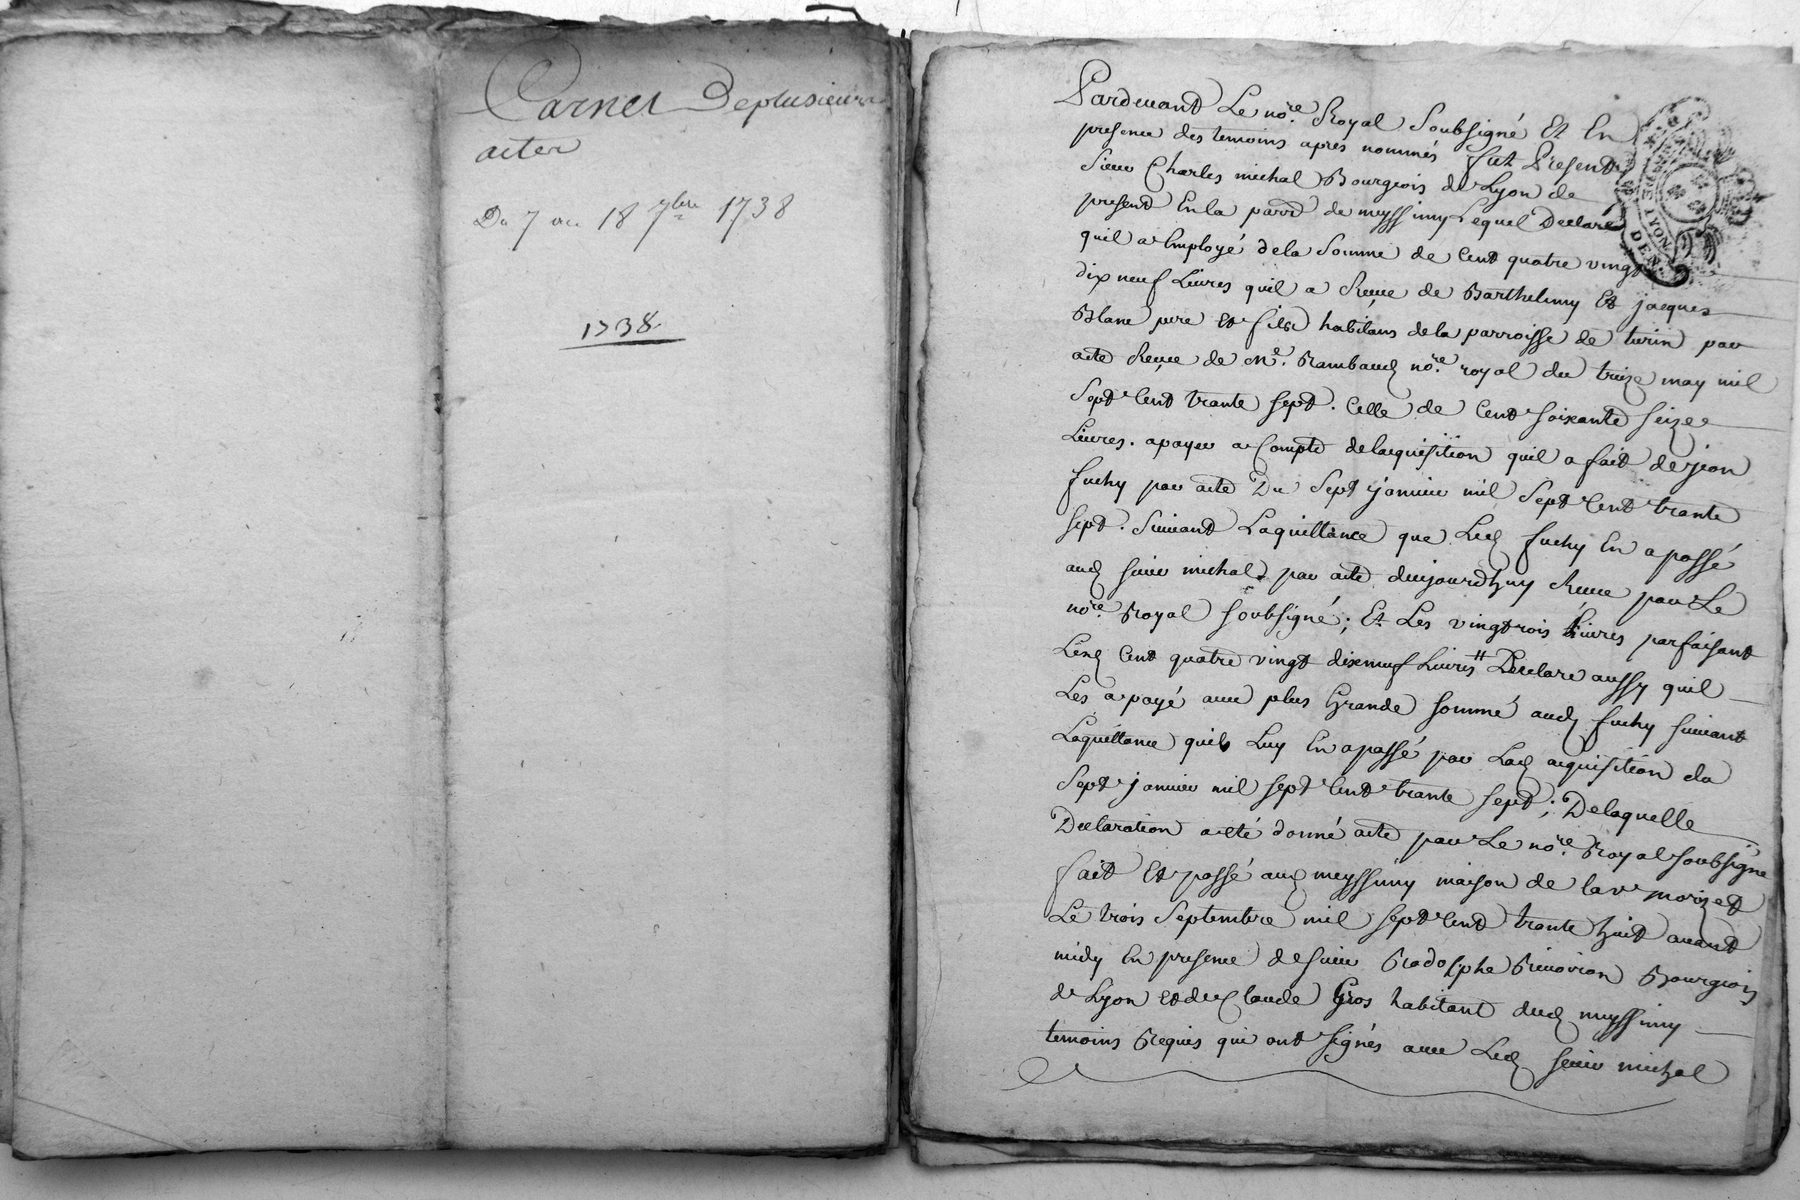 Carnet Deplusieurs
actes
Du 7 au 18 7bre 1738
1738
Pardevant Le nore. Royal Soubsigné Et En
presence des temoins apres nommés fut Present
Sieur Charles michal Bourgeois de Lyon de
present En la parr de meyssimy Lequel Declare
quil a Employé de la Somme de Cent quatre vingt
dix neuf Livres quil a Receue de Barthelemy Et jacques
Blanc pere et fils habitans de la parroisse de turin par
acte Receu de Me. Rambaud nore. royal du treize may mil
Sept Cent trante sept. Celle de Cent soixante seize
Livres. a payer a Compte delacquisition quil a fait de jean
fuchy par acte Du Sept janvier mil Sept Cent trante
sept. Suivant Laquittance que Led fuchy En a passé
aud sieur michal par acte dujourdhuy Receu par Le
nore. Royal soubsigné; Et Les vingtrois Livres parfaisant
Lesd Cent quatre vingt dixneuf Livres Declare aussy quil
Les a payé avec plus Grande sommé aud fuchy suivant
Laquittance quil Luy En a passé par Lad acquisition du
Sept janvier mil sept Cent trante sept; Delaquelle
Declaration a eté donné acte par Le nore. Royal soubsigné
fait Et passé aud meyssimy maison de la ve morizet
Le trois Septembre mil sept Cent trante huit avant
midy En presence de sieur Rodolphe Bourgeois
de Lyon et de Claude Gros habitant dud meyssimy
temoins Requis qui ont signés avec Led sieur michal
LYON
DEN